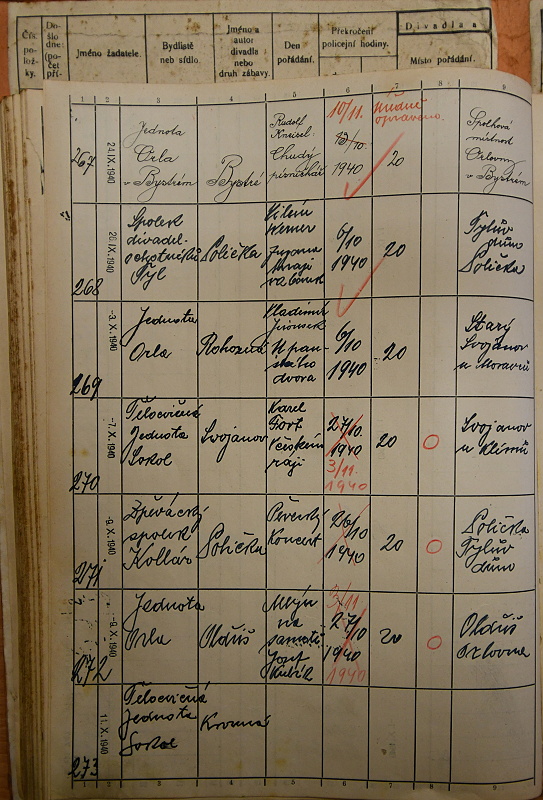 Čís. po- ložky.
Do- šlo dne: (po- čet pří-
Jméno žadatele.
Bydliště neb sídlo.
Jméno a autor divadla nebo druh zábavy.
Den pořádání.
Překročení policejní hodiny.
Divadla a
Místo pořádání.
1 2 3 4 5 6 7 8 9
267
24.IX.1940
Jednota
Orla
v Bystrém
Bystré
Rudolf
Kneisel
Chudý
písničkář
10/11.
1940
20
Spolková
místnost
Orlovny
v Bystrém
268
26.IX.1940
Spolek
divadel.
ochotníků
Tyl
Polička
Vilém
Werner
6/10
1940
20
Tylův
dům
Polička
269
-3.X.1940
Jednota
Orla
Rohozná
Vladimír
N pan-
ského
dvora
6/10
1940
20
Starý
Svojanov
u Moravců
270
-7.X.1940
Tělocvičná
Jednota
Sokol
Svojanov
Karel
Fořt
V českém
ráji
27/10.
1940
3/11.
1940
20
Svojanov
u Klimů
271
-9.X.1940
Zpěvácký
spolek
Kollár
Polička
Pěvecký
Koncert
26/10
1940
20
Polička
Tylův
dům
272
-9.X.1940
Jednota
Orla
Oldřiš
Mlýn
na
samotě
Josef
Kubík
3/11
27/10
1940
1940
20
Oldřiš
Orlovna
273
11.X.1940
Tělocvičná
Jednota
Sokol
Krouná